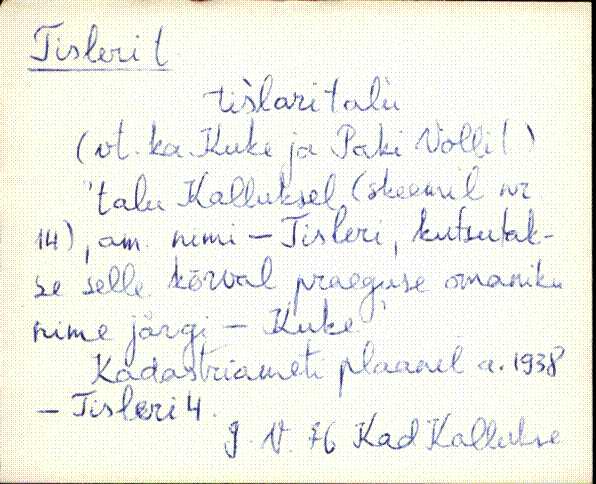 Tisleri t.
tišlaritalu
(vt. ka Kuke ja Paki Volli t.)
"talu Kalluksel (skeemil nr
14), am. nimi – Tisleri, kutsutak-
se selle kõrval praeguse omaniku
nime järgi – Kuke."
Kadastriameti plaanil a. 1938
– Tisleri 4.
J. V. 76 Kad Kallukse